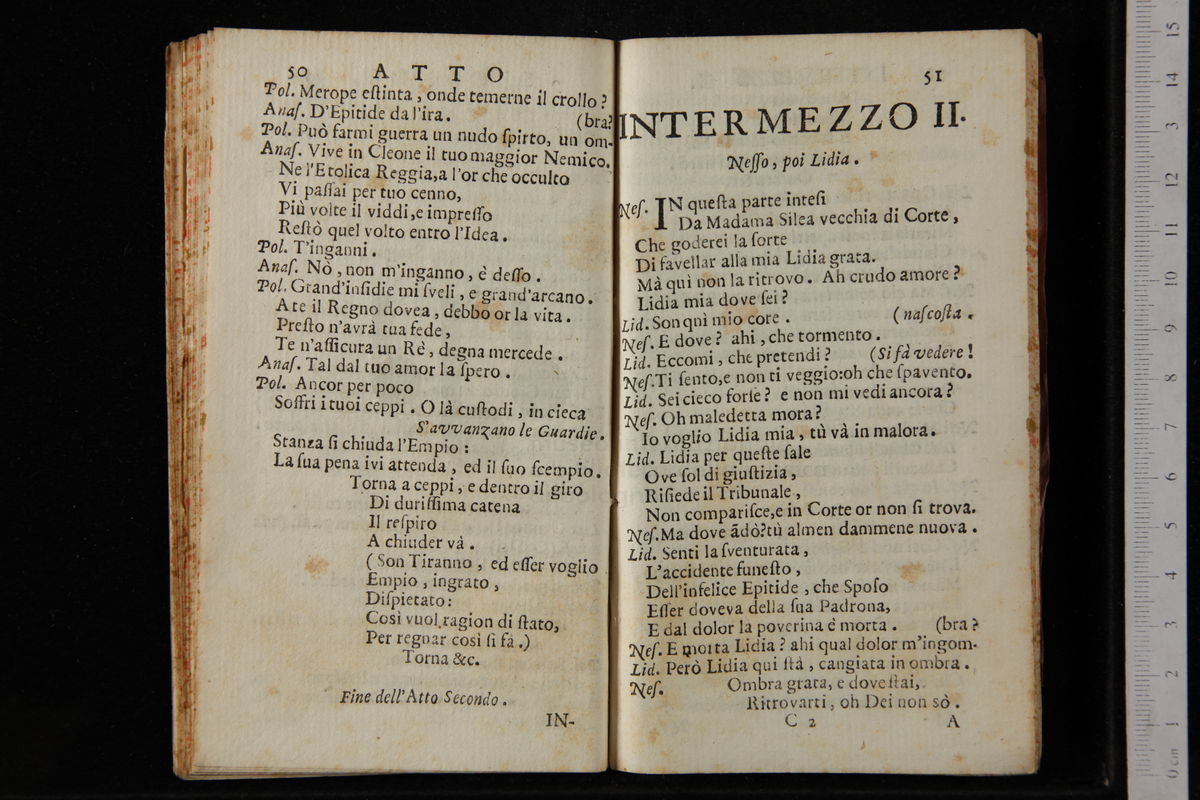 50 ATTO
Pol. Merope eſtinta, onde temerne il crollo?
Anaſ. D'Epitide da l'ira. (bra?
Pol. Può farmi guerra un nudo ſpirto, un om-
Anaſ. Vive in Cleone il tuo maggior Nemico.
Ne l'Etolica Reggia, a l'or che occulto
Vi paſſai per tuo cenno,
Più volte il viddi, e impreſſo
Reſtò quel volto entro l'Idea.
Pol. T'inganni.
Anaſ. Nò, non m'inganno, è deſſo.
Pol. Grand'inſidie mi ſveli, e grand'arcano.
A te il Regno dovea, debbo or la vita.
Preſto n'avrà tua fede,
Te n'aſſicura un Rè, degna mercede.
Anaſ. Tal dal tuo amor la ſpero.
Pol. Ancor per poco
Soffri i tuoi ceppi. O là cuſtodi, in cieca
S'avvanzano le Guardie.
Stanza ſi chiuda l'Empio:
La ſua pena ivi attenda, ed il ſuo ſcempio.
Torna a ceppi, e dentro il giro
Di duriſſima catena
Il reſpiro
A chiuder và.
(Son Tiranno, ed eſſer voglio
Empio, ingrato,
Diſpietato:
Così vuol ragion di ſtato,
Per regnar così ſi fà.)
Torna &c.
Fine dell'Atto Secondo.
IN-
51
INTERMEZZO II.
Neſſo, poi Lidia.
Neſ. IN queſta parte inteſi
Da Madama Silea vecchia di Corte,
Che goderei la ſorte
Di favellar alla mia Lidia grata.
Mà quì non la ritrovo. Ah crudo amore?
Lidia mia dove ſei?
Lid. Son qnì mio core. (naſcoſta.
Neſ. E dove? ahi, che tormento.
Lid. Eccomi, che pretendi? (Si fà vedere!
Neſ. Ti ſento, e non ti veggio: oh che ſpavento.
Lid. Sei cieco forſe? e non mi vedi ancora?
Neſ. Oh maledetta mora?
Io voglio Lidia mia, tù và in malora.
Lid. Lidia per queſte ſale
Ove ſol di giuſtizia,
Riſiede il Tribunale,
Non compariſce, e in Corte or non ſi trova.
Neſ. Ma dove ãdò? tù almen dammene nuova.
Lid. Senti la ſventurata,
L'accidente funeſto,
Dell'infelice Epitide, che Spoſo
Eſſer doveva della ſua Padrona,
E dal dolor la poverina è morta. (bra?
Neſ. E morta Lidia? ahi qual dolor m'ingom-
Lid. Però Lidia qui ſtà, cangiata in ombra.
Neſ. Ombra grata, e dove ſtai,
Ritrovarti, oh Dei non sò.
C 2 A
15
14
13
12
11
10
9
8
7
6
5
4
3
2
1
0 cm